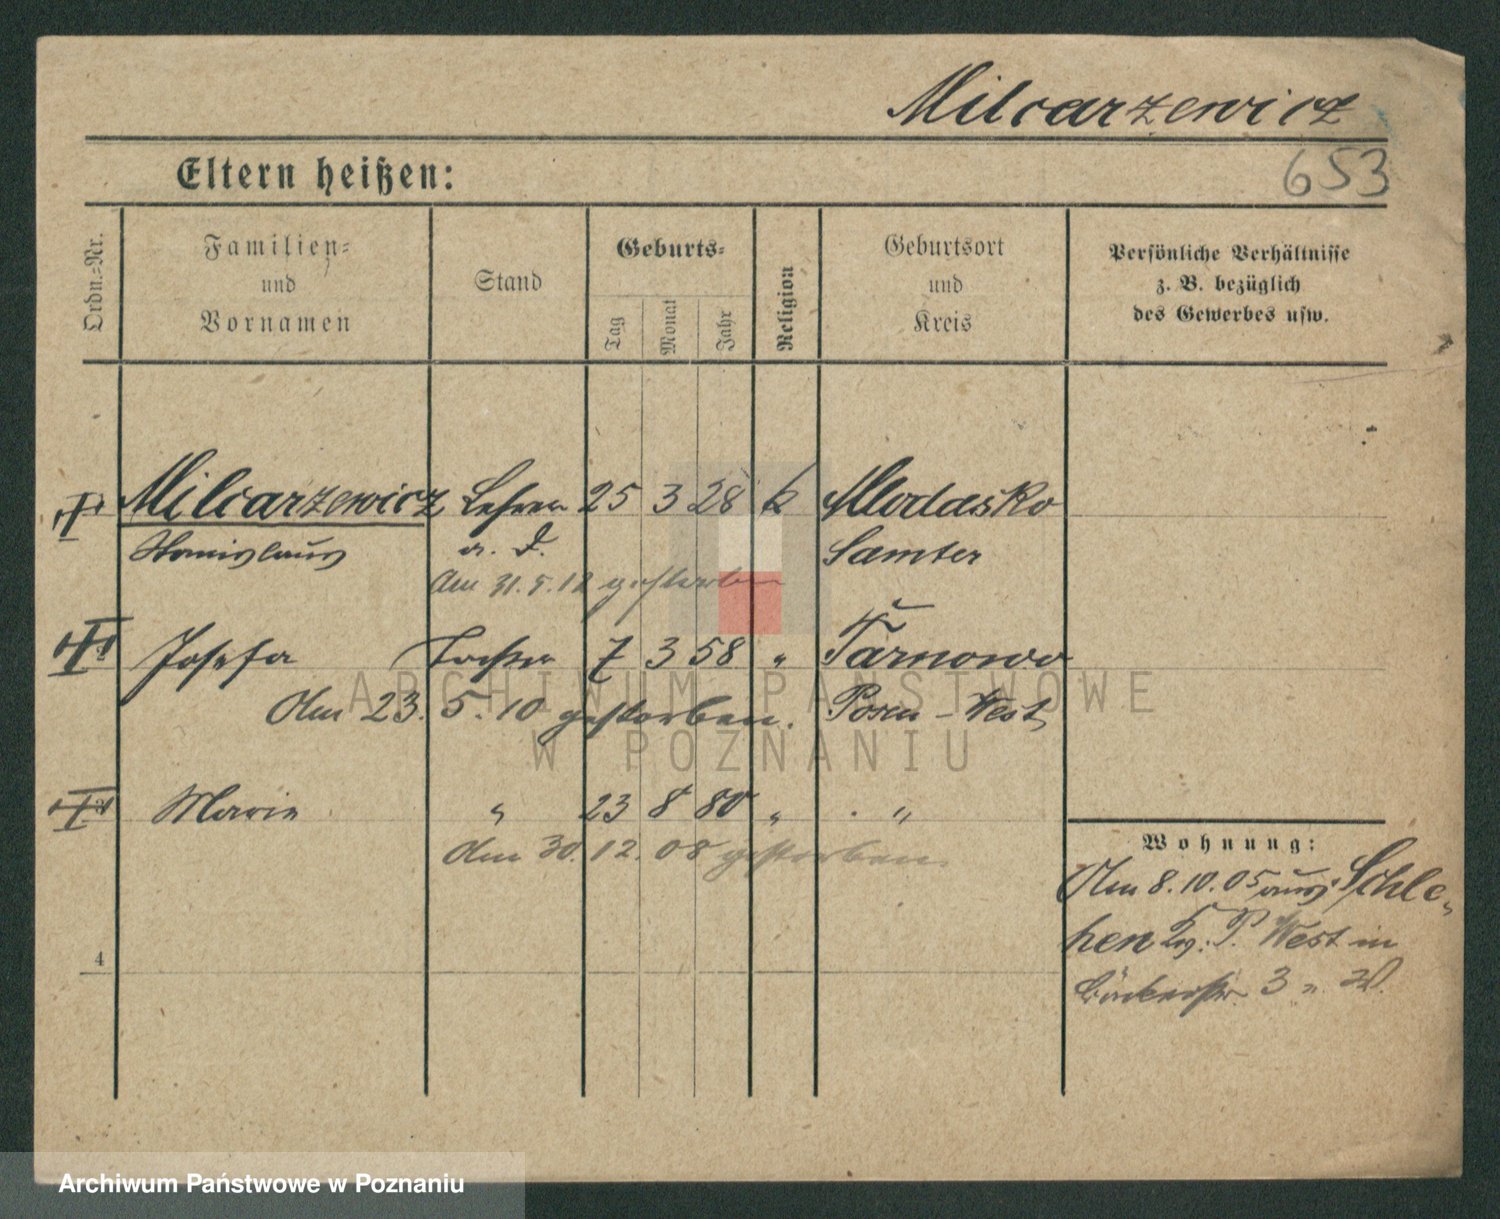 Milcarzewicz
653
Eltern heißen:
Ordn.=Nr.
Familien=
und
Vornamen
Stand
Geburts=
Tag
Monat
Jahr
Religion
Geburtsort
und
Kreis
Persönliche Verhältnisse
z. B. bezüglich
des Gewerbes usw.
Milcarzewicz Lehrer 25 3 28 k Mlodasko
Stanislaus a. D. Samter
Am 31.5.12 gestorben
Josefa Tochter 7 3 58 " Tarnowo
Am 23. 5. 10 gestorben. Posen-West
Marie " 23 8 80 " "
Am 30. 12. 08 gestorben.
4
Wohnung:
Am 8.10.05 aus Schle-
hen P. West in
Bäckerstr. 3
ARCHIWUM PAŃSTWOWE
W POZNANIU
Archiwum Państwowe w Poznaniu